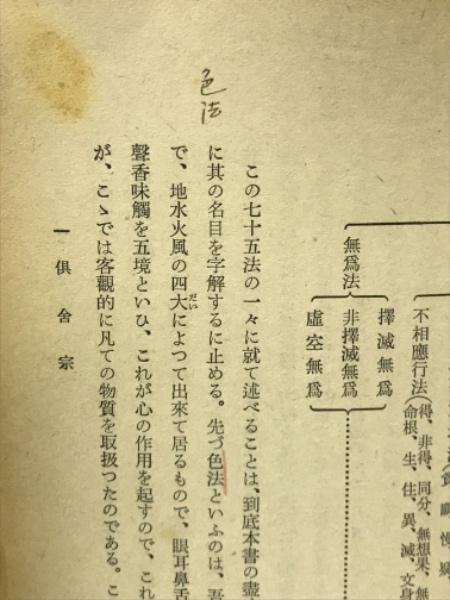 不相應行法(得、非得、同分、無想果、無
命根、生、住、異、滅、文身
無爲法
擇滅無爲
非擇滅無爲
虛空無爲
色法
この七十五法の一々に就て述べることは、到底本書の盡
に其の名目を字解するに止める。先づ色法といふのは、吾
で、地水火風の四大だいによつて出來て居るもので、眼耳鼻舌
聲香味觸を五境といひ、これが心の作用を起すので、これ
が、こゝでは客觀的に凡ての物質を取扱つたのである。こ
一 俱舍宗